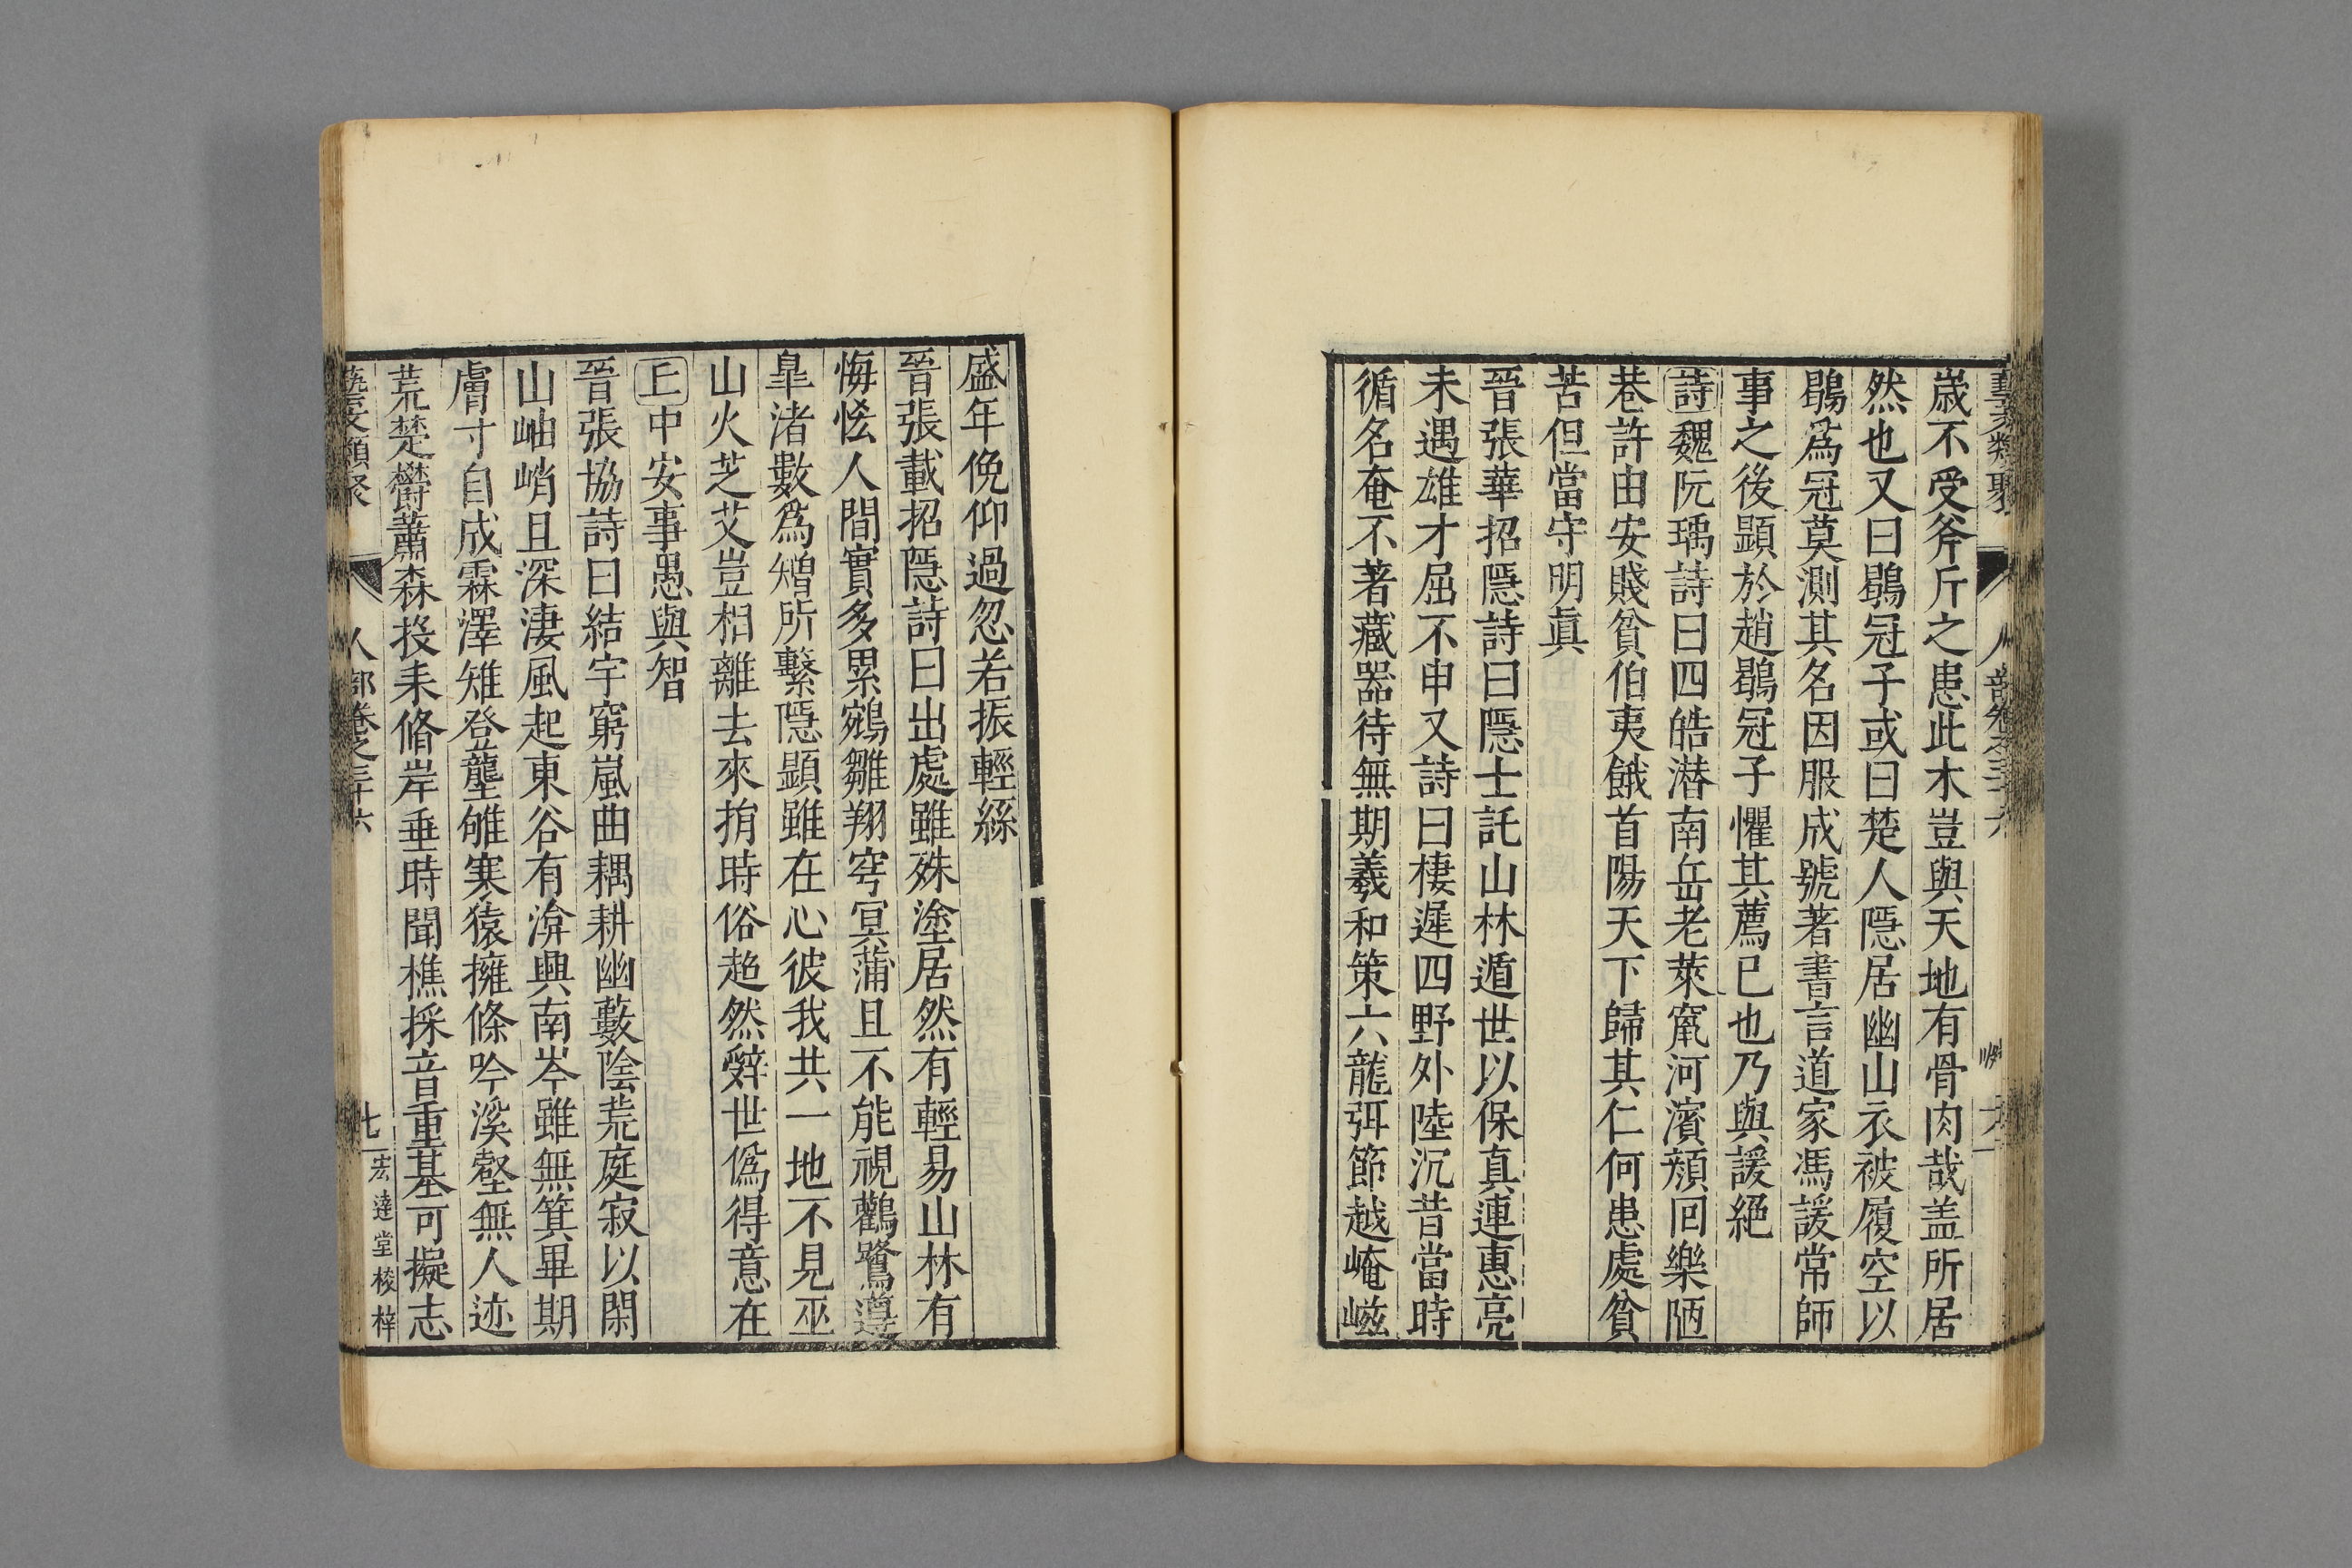 歲不受斧斤之患此木豈與天地有骨肉哉盖所居
然也又曰鶡冠子或曰楚人隱居幽山衣被履空以
鶡爲冠莫測其名因服成號著書言道家馮諼常師
事之後顕於趙鶡冠子懼其薦已也乃與諼絕
詩魏阮瑀詩曰四皓潜南岳老萊竄河濱頽回樂陋
巷許由安賤貧伯夷餓首陽天下歸其仁何患處貧
苦但當守明真
晉張華招隱詩曰隱士託山林遁世以保真連惠亮
未遇雄才屈不申又詩曰棲遲四野外陸沉昔當時
循名奄不著藏器待無期羲和策六龍弭節越崦嵫
盛年俛仰過忽若振輕絲
晉張載招隱詩曰出處雖殊塗居然有輕易山林有
悔恡人間實多累鵷雛翔穹冥蒲且不能視鸛鷺遵
臯渚數爲矰所繫隱顕雖在心彼我共一地不見巫
山火芝艾豈相離去來捐時俗超然辭世僞得意在
丘中安事愚與智
晉張協詩曰結宇窮嵐曲耦耕幽藪陰荒庭寂以閑
山岫峭且深淒風起東谷有渰興南岑雖無箕畢期
膚寸自成霖澤雉登壟雊寒猿擁條吟溪壑無人迹
荒楚欝蕭森投耒脩岸垂時聞樵採音重基可擬志
藝文類聚 人部卷之三十六 七 宏達堂校梓